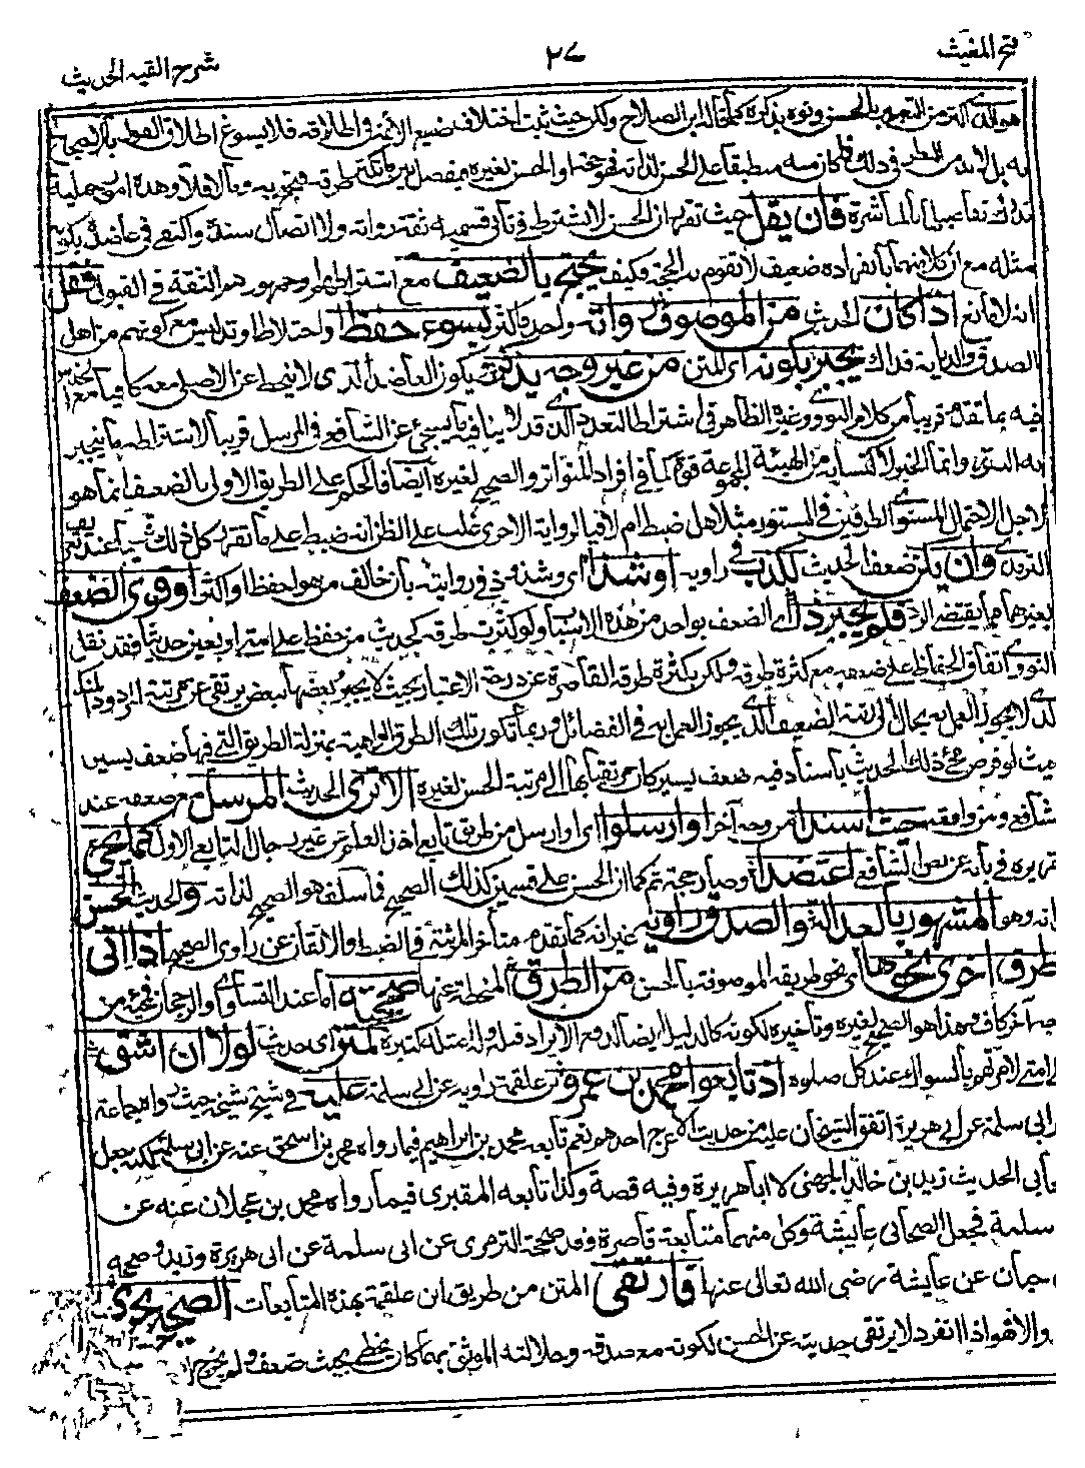 فتح المغيث
٢٧
شرح الفية الحديث
هو الذي اكثر من التعبير بالحسن ونوه بذكره كما قاله ابن الصلاح ولكن حيث ثبت اختلاف صنيع الائمة في اطلاقه فلا يسوغ اطلاق القول بالاحتجاج
به بل لا بد من النظر في ذلك فما كان منه منطبقا على الحسن لذاته فهو حجة او الحسن لغيره فيفصل بين ما تكثر طرقه فيحتج به وما لا فلا وهذه امور جملية
تدرك تفاصيلها بالمباشرة فان يقل حيث تقرر ان الحسن لا يشترط في ثاني قسميه ثقة رواته ولا اتصال سنده واكتفي في عاضده بكونه
مثله مع ان كلا منهما بانفراده ضعيف لا تقوم به الحجة فكيف يحتج بالضعيف مع اشتراطهم او جمهورهم الثقة في القبول فقل
انه لا مانع اذا كان الحديث من الموصوف رواته واحد فاكثر بسوء حفظ او اختلاط او تدليس مع كونهم من اهل
الصدق والديانة فذاك يجبر بكونه اي المتن من غير وجه يذكر ويكون العاضد الذي لا ينحط عن الاصلي معه كافيا
فيه بما تقدم قريبا من كلام النووي وغيره الظاهر في اشتراط التعدد الذي قد لا ينافيه ما يجيء عن الشافعي في المرسل قريبا لاشتراطه ما ينجبر
به التفرد وانما انجبر لاكتسابه من الهيئة المجموعة قوة كما في افراد المتواتر والصحيح لغيره ايضا فالحكم على الطريق الاولى بالضعف انما هو
لاجل الاحتمال المستوي الطرفين في المستور مثلا هل ضبط ام لا فبالرواية الاخرى غلب على الظن انه ضبط على ما تقرر كل ذلك
الترمذي وان يكن ضعف الحديث لكذب في راويه او شذا اي وشذوذ في روايته بان خالف من هو احفظ او اكثر او قوي الضعف
بغيرهما مما يقتضي الرد فلم يجبر ذا اي الضعف بواحد من هذه الاسباب ولو كثرت طرقه كحديث من حفظ على امتي اربعين حديثا فقد نقل
النووي اتفاق الحفاظ على ضعفه مع كثرة طرقه ولكن بكثرة طرقه القاصرة عن درجة الاعتبار بحيث لا يجبر بعضها ببعض يرتقي عن مرتبة المردود المنكر
الذي لا يجوز العمل به بحال الى رتبة الضعيف الذي يجوز العمل به في الفضائل وربما تكون تلك الطرق الواهية بمنزلة الطريق التي فيها ضعف يسير
بحيث لو فرض مجيء ذلك الحديث باسناد فيه ضعف يسير كان مرتقيا بها الى مرتبة الحسن لغيره الا ترى الحديث المرسل مع ضعفه عند
الشافعي ومن وافقه حيث اسندا من وجه آخر او ارسلوا اي او ارسل من طريق تابعي اخذ العلم عن غير رجال التابعي الاول كما يجيء
تقريره في بابه عن نص الشافعي اعتضدا وصار حجة ثم كما ان الحسن على قسمين كذلك الصحيح فما سلف هو الصحيح لذاته والحديث الحسن
لذاته وهو المشهور بالعدالة والصدق راويه غير انه كما تقدم متأخر المرتبة في الضبط والاتقان عن راوي الصحيح اذا اتى
طرق اخرى نحوها اي نحو طريقه الموصوفة بالحسن من الطرق المنحطة عنها صححته اما عند التساوي او الرجحان فمجيئه من
وجه آخر كاف وهذا هو الصحيح لغيره وتأخيره لكونه كالدليل ايضا لدفع الايراد قبله وله امثلة كثيرة كمتن اي حديث لولا ان اشق
على امتي لامرتهم بالسواك عند كل صلوة اذ تابعوا محمد بن عمرو بن علقمة راويه عن ابي سلمة عليه في شيخ شيخه حيث رواه جماعة
غير ابي سلمة عن ابي هريرة اتفق الشيخان عليه من حديث الاعرج احدهم نعم تابعه محمد بن ابراهيم فيما رواه محمد بن اسحق عنه عن ابي سلمة لكنه جعل
صحابي الحديث زيد بن خالد الجهني لا ابا هريرة وفيه قصة وكذا تابعه المقبري فيما رواه محمد بن عجلان عنه عن
ابي سلمة فجعل الصحابي عايشة وكل منهما متابعة قاصرة وقد صححه الترمذي عن ابي سلمة عن ابي هريرة وزيد وصححه
ابن حبان عن عايشة رضي الله تعالى عنها فارتقى المتن من طريق ابن علقمة بهذه المتابعات الصحيح يجري
والا فهو اذا انفرد لا يرتقي حديثه عن الحسن لكونه مع صدقه وجلالته الموثق بهما كان يخطئ بحيث ضعف ولم يخرج